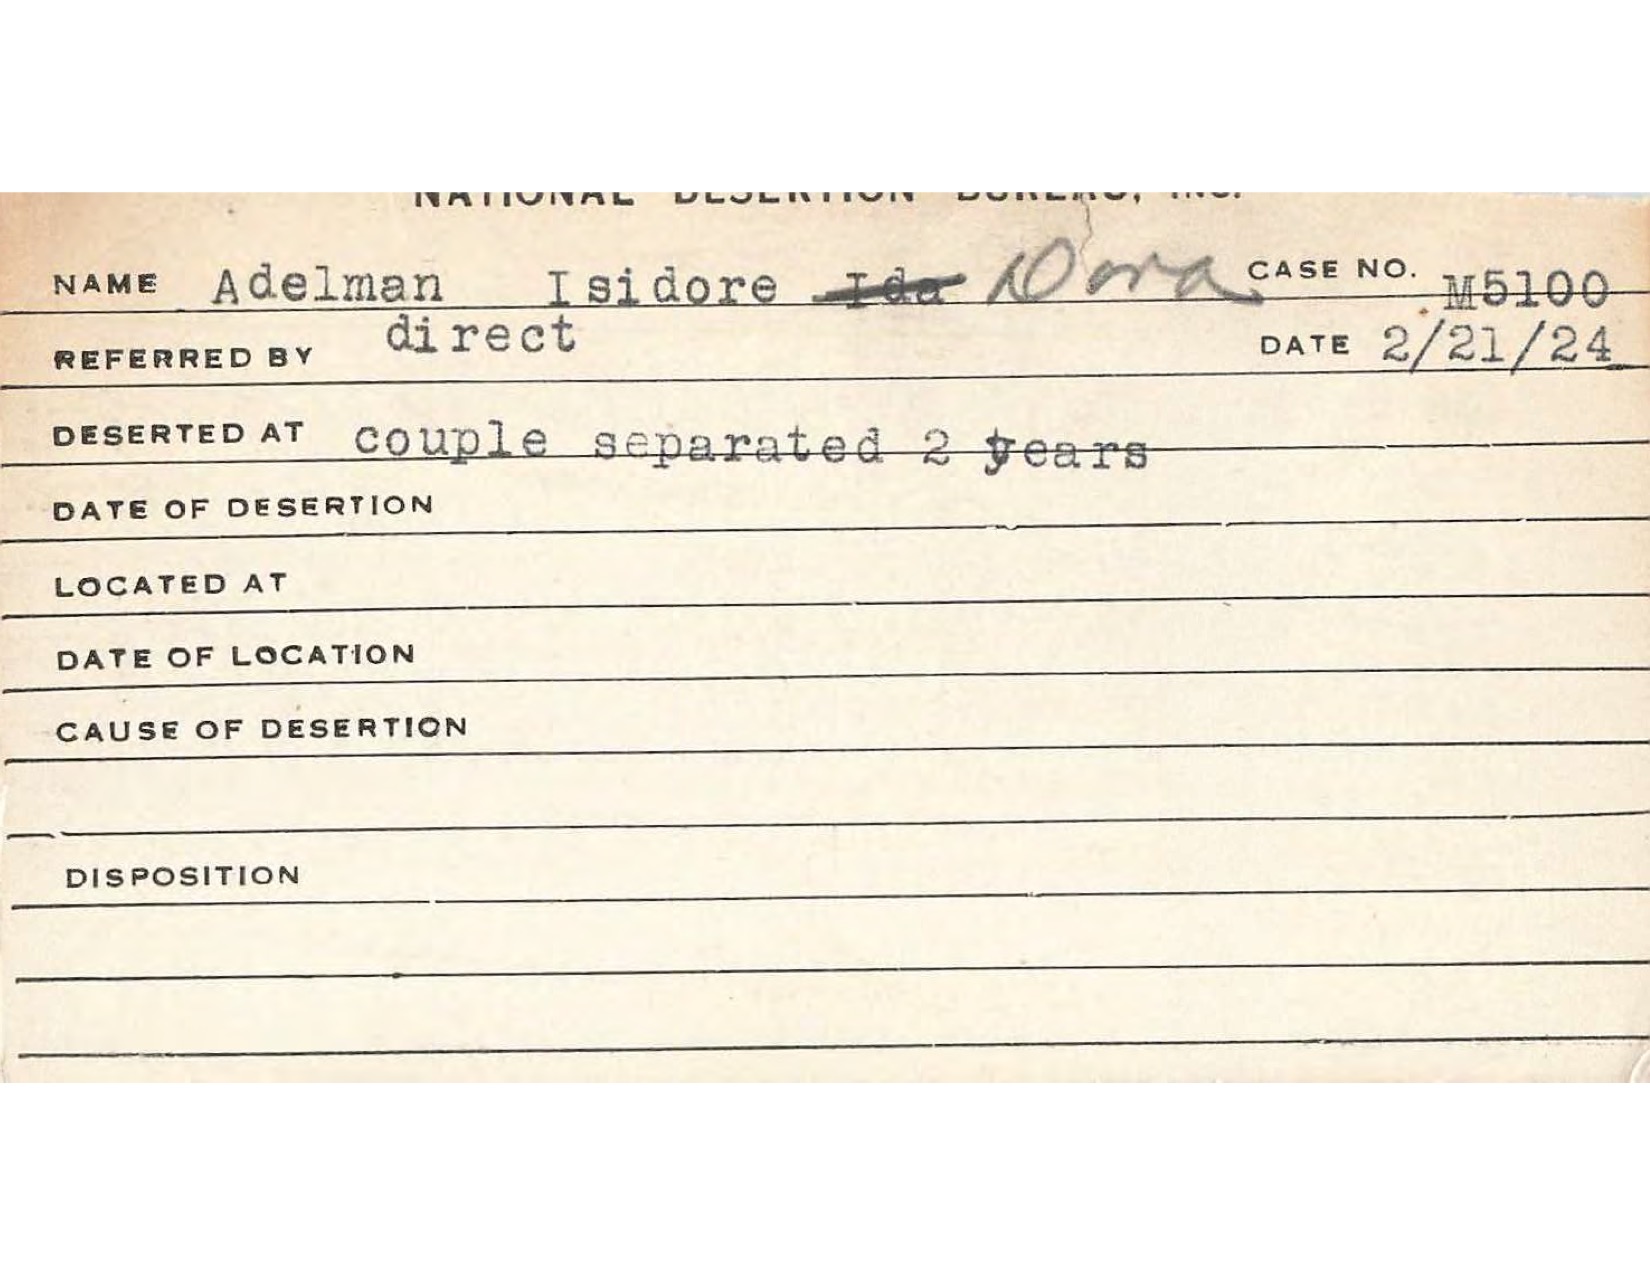 NATIONAL DESERTION BUREAU, INC.
NAME Adelman Isidore Ida Dora CASE NO. M5100
REFERRED BY direct DATE 2/21/24
DESERTED AT couple separated 2 years
DATE OF DESERTION
LOCATED AT
DATE OF LOCATION
CAUSE OF DESERTION
DISPOSITION